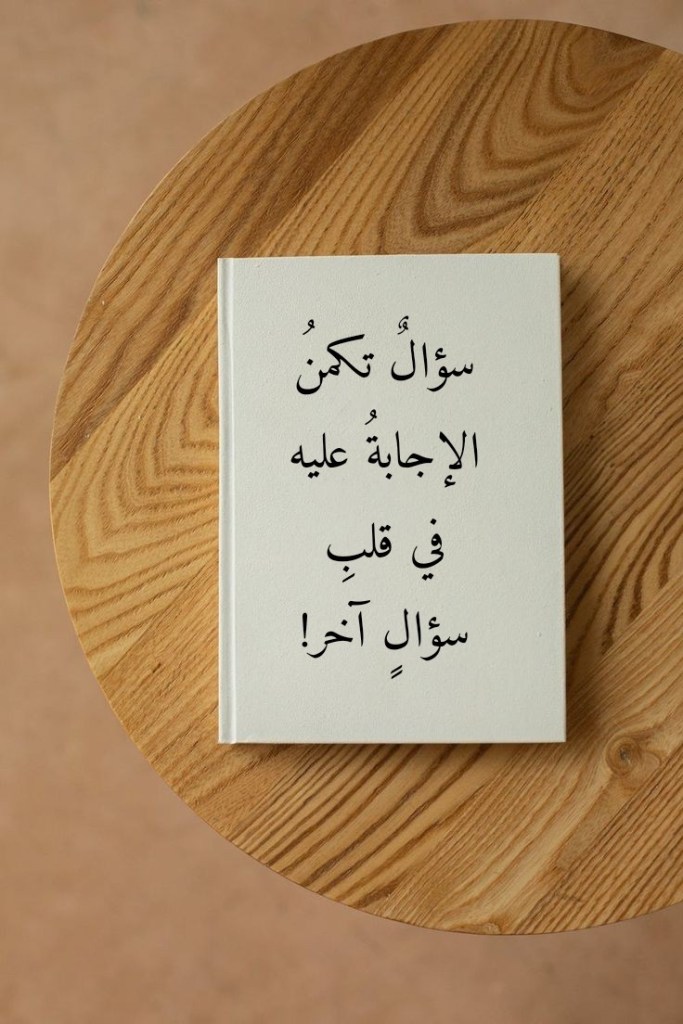 سؤالٌ تكمنُ
الإجابةُ عليه
في قلبِ
سؤالٍ آخر!